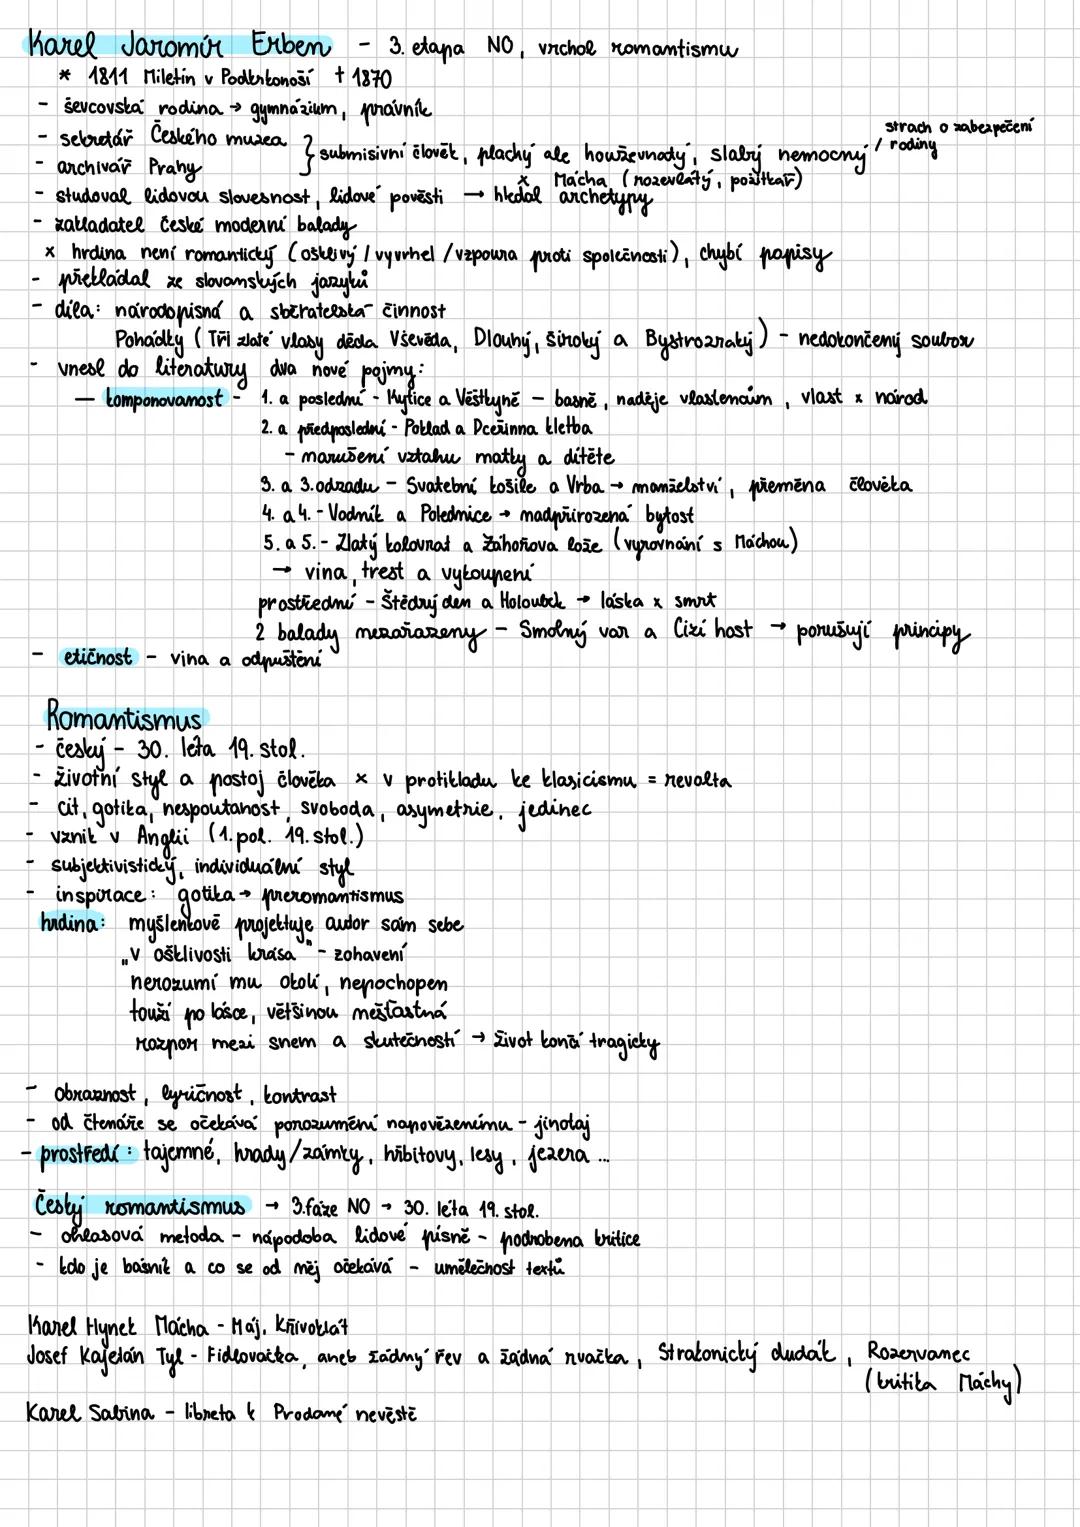 Karel Jaromír Erben - 3. etapa NO, vrchol romantismu
* 1811 Miletín v Podkrkonoší † 1870
- ševcovská rodina → gymnázium, právník
- sekretář Českého muzea
- archivář Prahy } submisivní člověk, plachý ale houževnatý, slabý nemocný / strach o zabezpečení rodiny
x Mácha (rozevlátý, požitkář)
- studoval lidovou slovesnost, lidové pověsti → hledal archetypy
- zakladatel české moderní balady
x hrdina není romantický (ošklivý / vyvrhel / vzpoura proti společnosti), chybí popisy
- překládal ze slovanských jazyků
- díla: národopisná a sběratelská činnost
Pohádky (Tři zlaté vlasy děda Vševěda, Dlouhý, široký a Bystrozraký) - nedokončený soubor
- vnesl do literatury dva nové pojmy:
— komponovanost - 1. a poslední - Kytice a Věštkyně - básně, naděje vlastencům, vlast x národ
2. a předposlední - Poklad a Dceřinna kletba
- narušení vztahu matky a dítěte
3. a 3. odzadu - Svatební košile a Vrba → manželství, přeměna člověka
4. a 4. - Vodník a Polednice → nadpřirozená bytost
5. a 5. - Zlatý kolovrat a Záhořova lože (vyrovnání s Máchou)
→ vina, trest a vykoupení
prostřední - Štědrý den a Holoubek → láska x smrt
2 balady nezařazeny - Smolný var a Cizí host → porušují principy
- etičnost - vina a odpuštění
Romantismus
- český - 30. léta 19. stol.
- životní styl a postoj člověka x v protikladu ke klasicismu = revolta
- cit, gotika, nespoutanost, svoboda, asymetrie, jedinec
- vznik v Anglii (1. pol. 19. stol.)
- subjektivistický, individuální styl
- inspirace: gotika → preromantismus
hrdina: myšlenkově projektuje autor sám sebe
„v ošklivosti krása" - zohavení
nerozumí mu okolí, nepochopen
touží po lásce, většinou nešťastná
rozpor mezi snem a skutečností → život končí tragicky
- obraznost, lyričnost, kontrast
- od čtenáře se očekává porozumění napovězenímu - jinotaj
- prostředí: tajemné, hrady/zámky, hřbitovy, lesy, jezera ...
Český romantismus → 3. fáze NO → 30. léta 19. stol.
- ohlasová metoda - nápodoba lidové písně - podrobena kritice
- kdo je básník a co se od něj očekává - umělečnost textů
Karel Hynek Mácha - Máj, Křivoklát
Josef Kajetán Tyl - Fidlovačka, aneb žádný řev a žádná rvačka, Strakonický dudák, Rozervanec
(kritika Máchy)
Karel Sabina - libreta k Prodané nevěstě